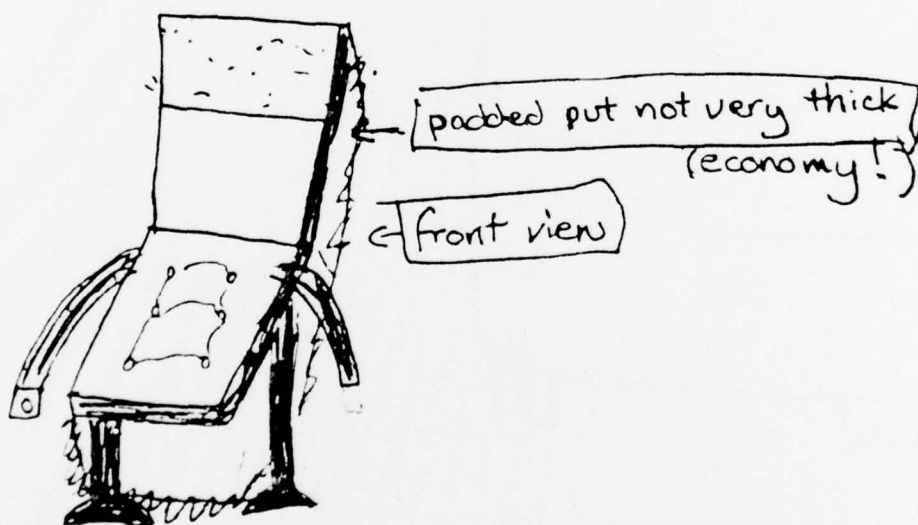 padded put not very thick
(economy!)
front view